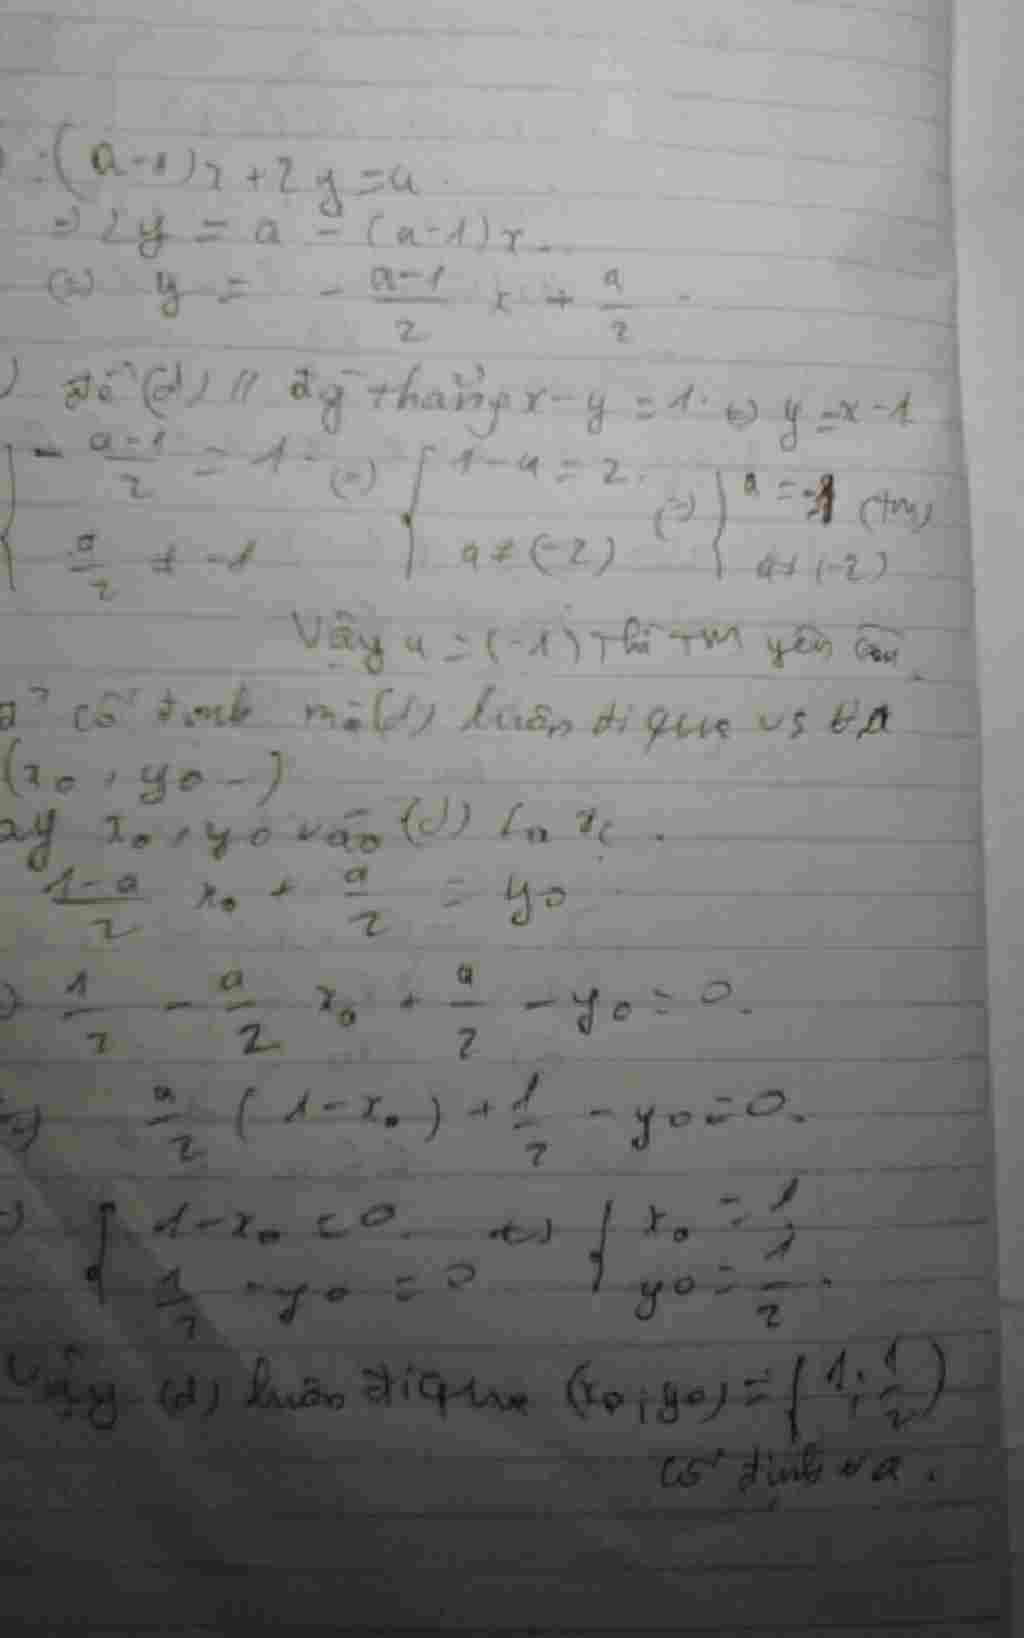 : (a-1)x + 2y = a.
=> 2y = a - (a-1)x.
(=) y = - \frac{a-1}{2} x + \frac{a}{2}
) để (d) // đg thẳng x - y = 1. <=> y = x - 1
{ - \frac{a-1}{2} = 1 (=) { 1 - a = 2. (=) { a = -1 (tm)
\frac{a}{2} ≠ -1 a ≠ (-2) a ≠ (-2)
Vậy a = (-1) thì tm yêu cầu.
cố định mà (d) luôn đi qua vs ∀a
(x0, y0)
ay x0, y0 vào (d) ta
\frac{1-a}{2} x0 + \frac{a}{2} = y0
\frac{1}{2} - \frac{a}{2} x0 + \frac{a}{2} - y0 = 0.
\frac{a}{2} (1 - x0) + \frac{1}{2} - y0 = 0.
{ 1 - x0 = 0. <=> { x0 = 1
\frac{1}{2} - y0 = 0 y0 = \frac{1}{2}.
Vậy (d) luôn đi qua (x0; y0) = (1; \frac{1}{2})
cố định ∀a.